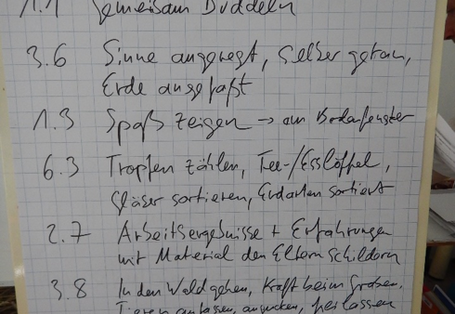 1.1 Gemeinsam Buddeln
3.6 Sinne angeregt, selber getan,
Erde angefaßt
1.3 Spaß zeigen → am Bodenfenster
6.3 Tropfen zählen, Tee-/Esslöffel,
Gläser sortieren, Erdarten sortiert
2.7 Arbeitsergebnisse + Erfahrungen
mit Material den Eltern schildern
3.8 In den Wald gehen, Kraft beim Graben,
Tieren anfassen, angucken, freilassen